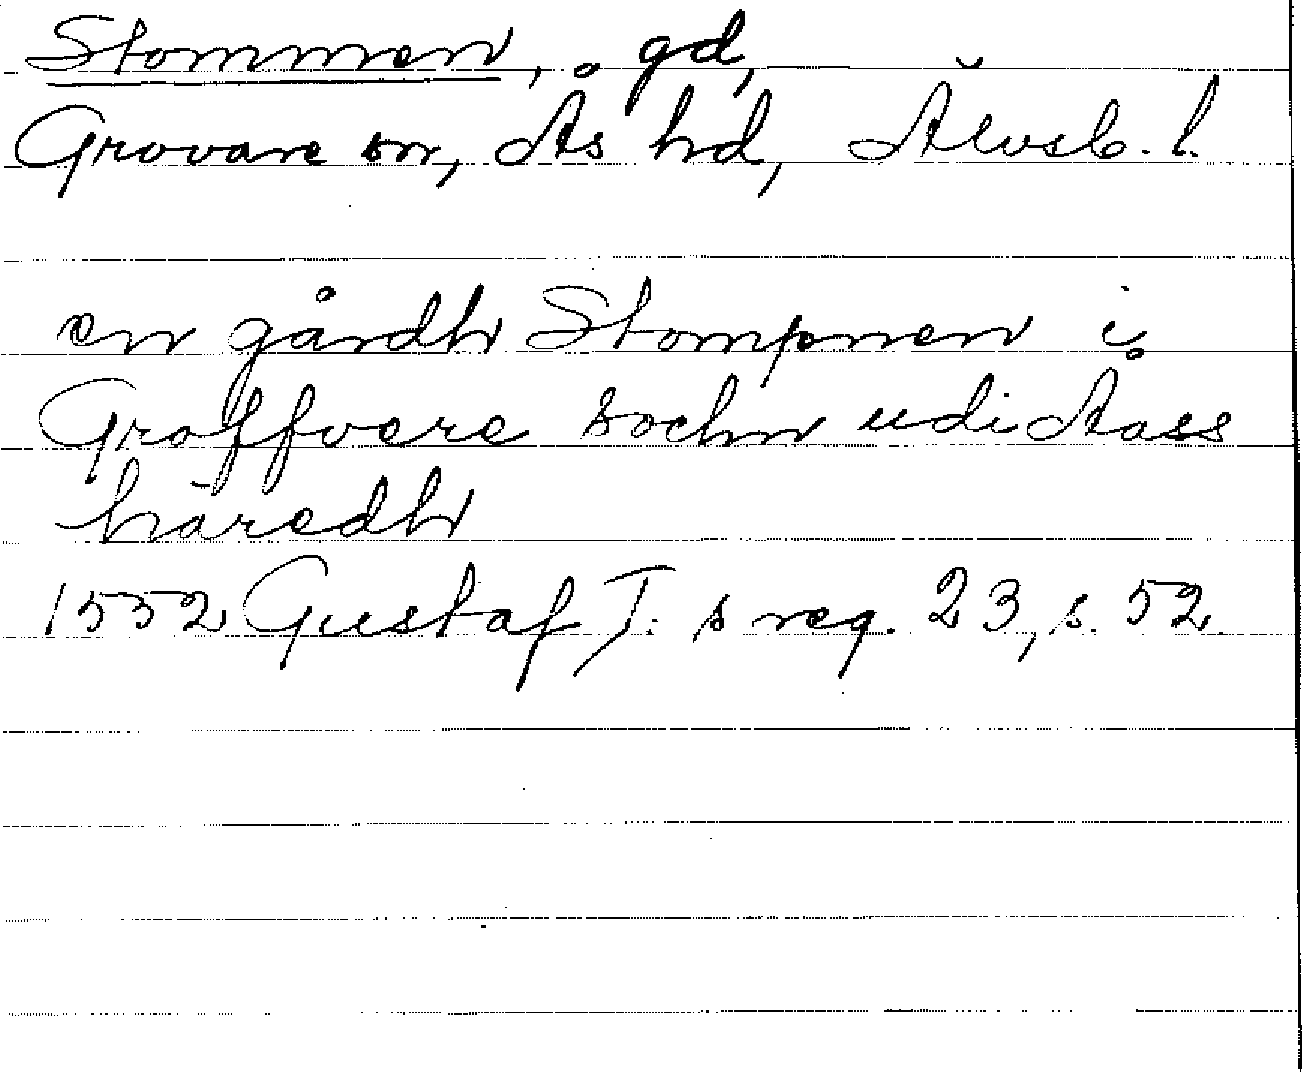 Stommen, gd,
Grovare sn, Ås hd, Älvsb. l.
en gårdh Stompnen i
Groffvere sochn udi Åass
häredh
1552 Gustaf I:s reg. 23, s. 52.